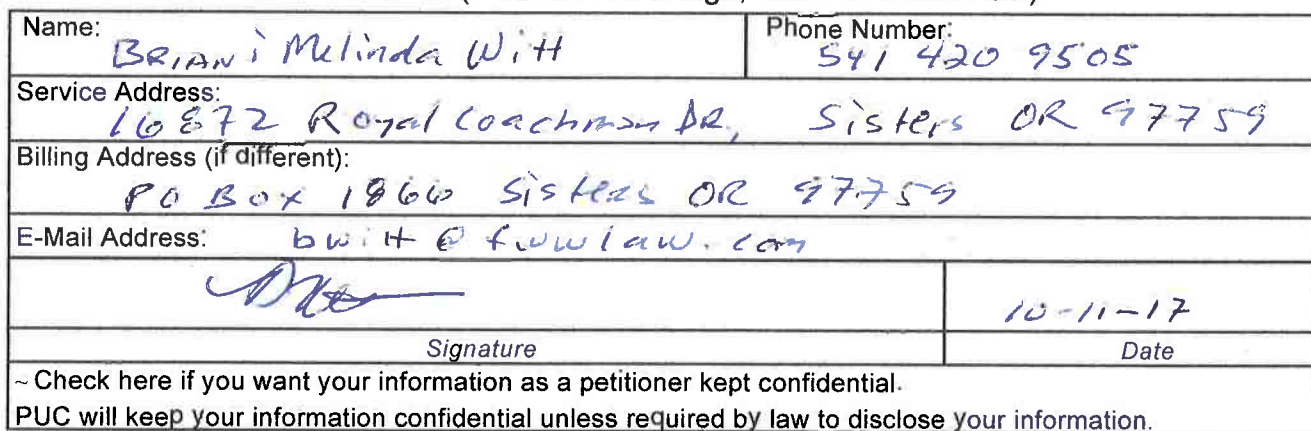 Name: Phone Number:
BRIAN & Melinda Witt 541 420 9505
Service Address:
16872 Royal Coachman DR, Sisters OR 97759
Billing Address (if different):
PO Box 1866 Sisters OR 97759
E-Mail Address: bwitt@fwwlaw.com
10-11-17
Signature Date
~ Check here if you want your information as a petitioner kept confidential.
PUC will keep your information confidential unless required by law to disclose your information.